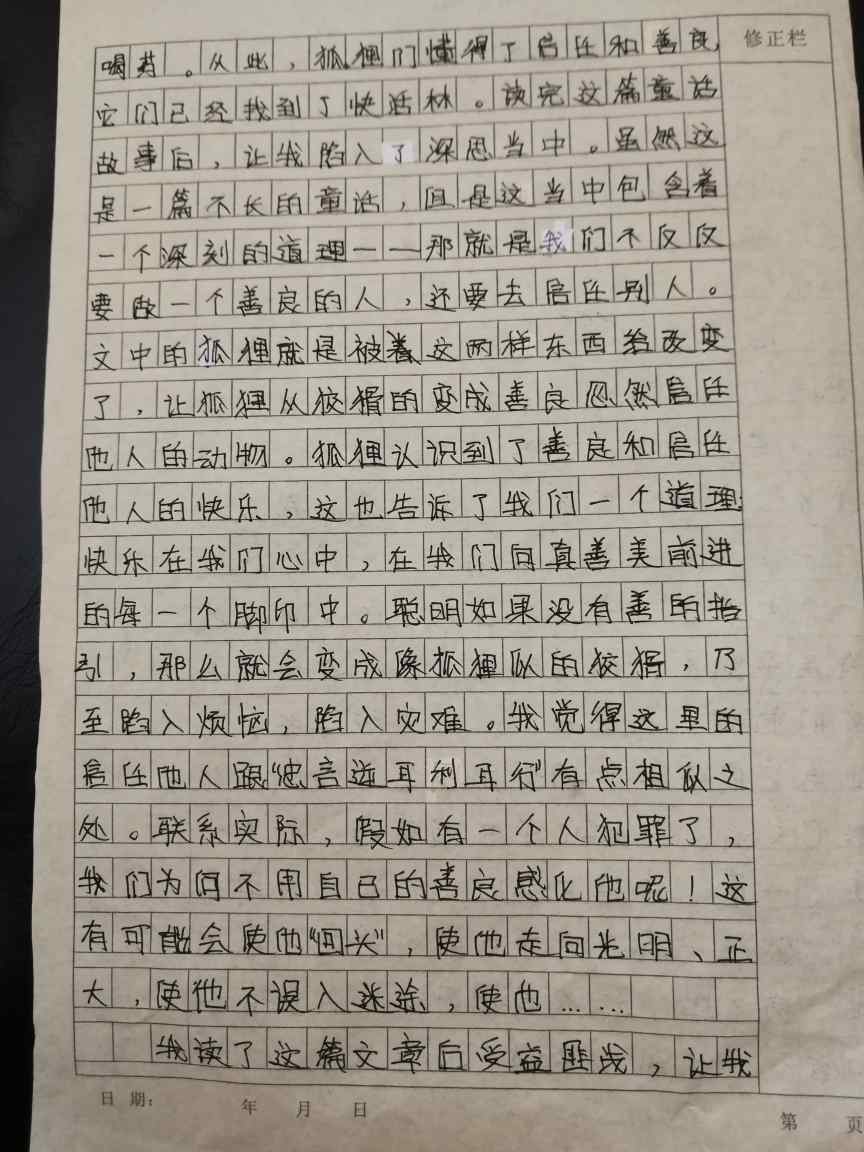 修正栏
喝药。从此，狐狸们懂得了信任和善良，
它们已经找到了快活林。读完这篇童话
故事后，让我陷入了深思当中。虽然这
是一篇不长的童话，但是这当中包含着
一个深刻的道理——那就是我们不仅仅
要做一个善良的人，还要去信任别人。
文中的狐狸就是被着这两样东西给改变
了，让狐狸从狡猾的变成善良忽然信任
他人的动物。狐狸认识到了善良和信任
他人的快乐，这也告诉了我们一个道理
快乐在我们心中，在我们向真善美前进
的每一个脚印中。聪明如果没有善的指
引，那么就会变成像狐狸似的狡猾，乃
至陷入烦恼，陷入灾难。我觉得这里的
信任他人跟“忠言逆耳利耳行”有点相似之
处。联系实际，假如有一个人犯罪了，
我们为何不用自己的善良感化他呢！这
有可能会使他“回头”，使他走向光明、正
大，使他不误入迷途，使他……
我读了这篇文章后受益匪浅，让我
日 期： 年 月 日
第 页